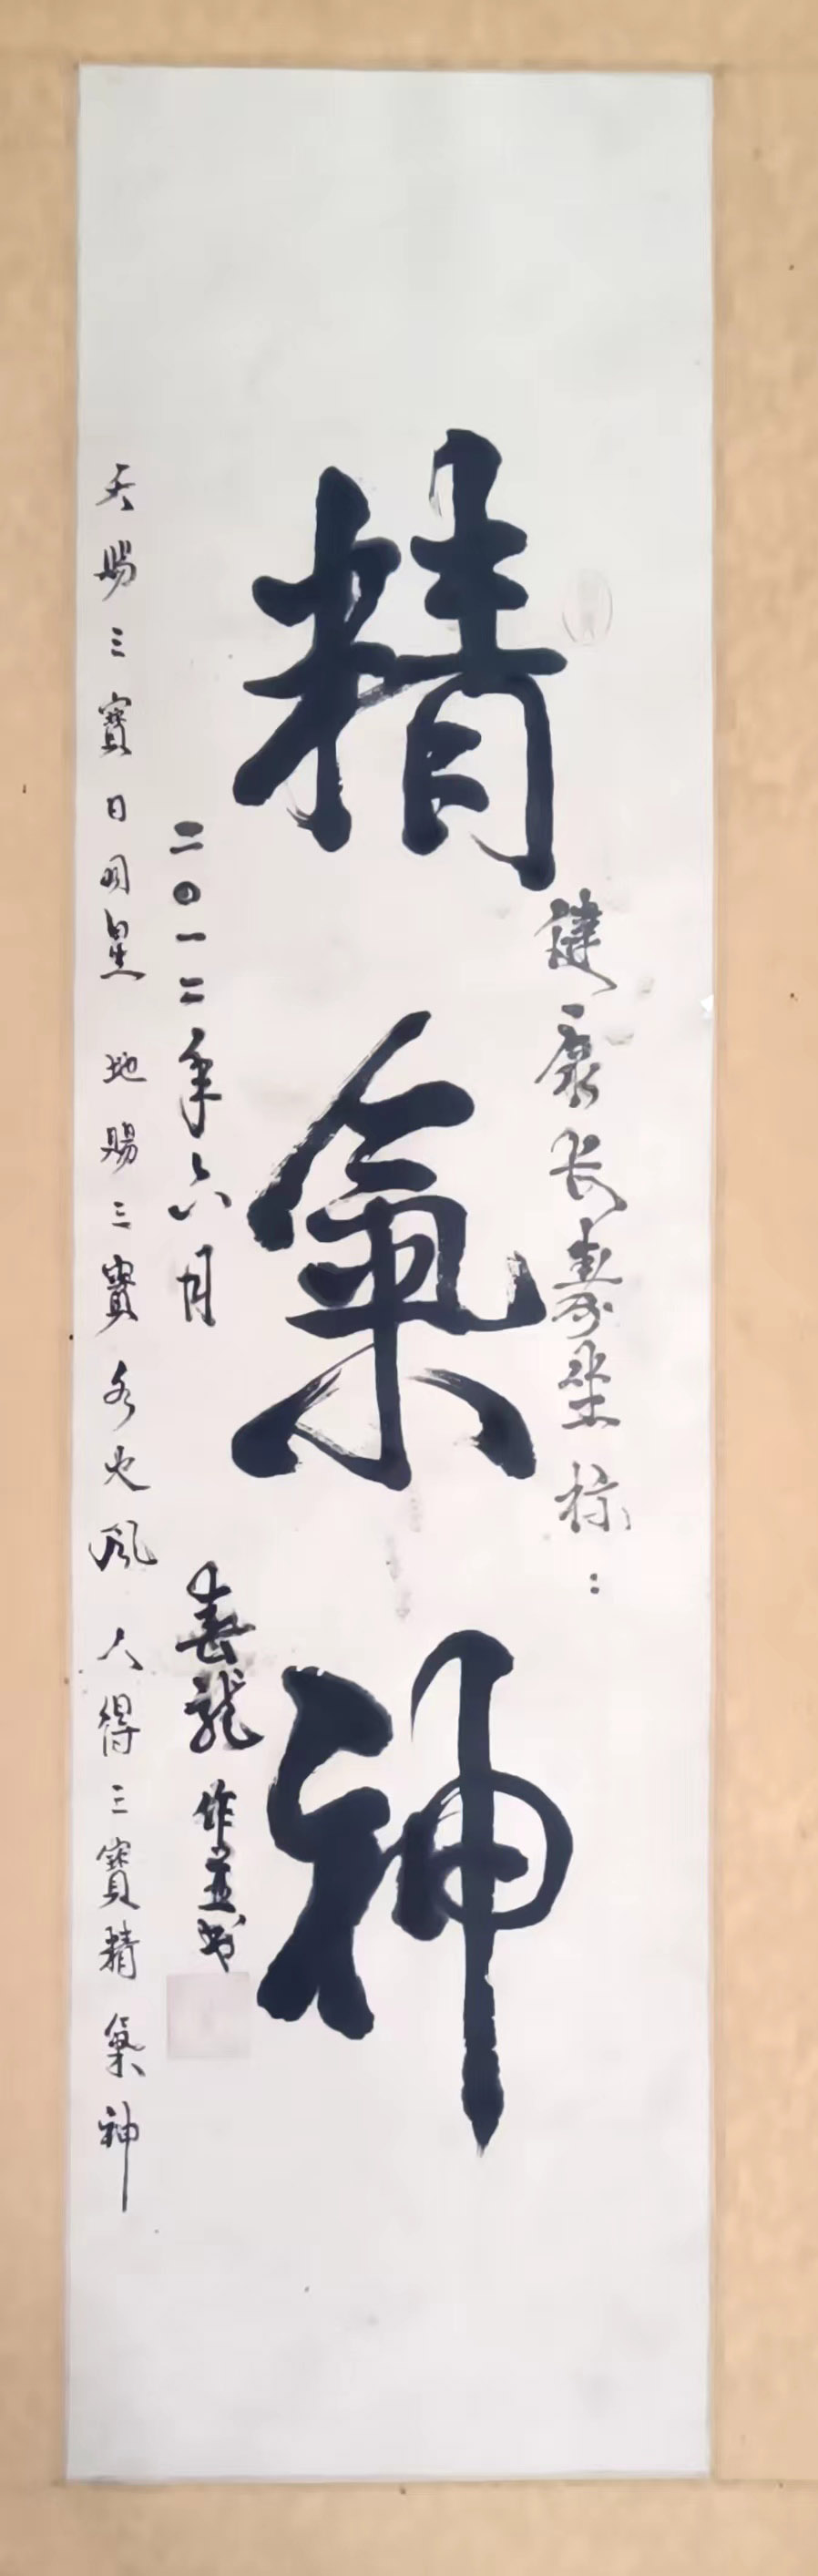 健康长壽坐标：
精氣神
二〇一二年六月 春龍 作並书
天賜三寶日月星 地賜三寶水火風 人得三寶精氣神